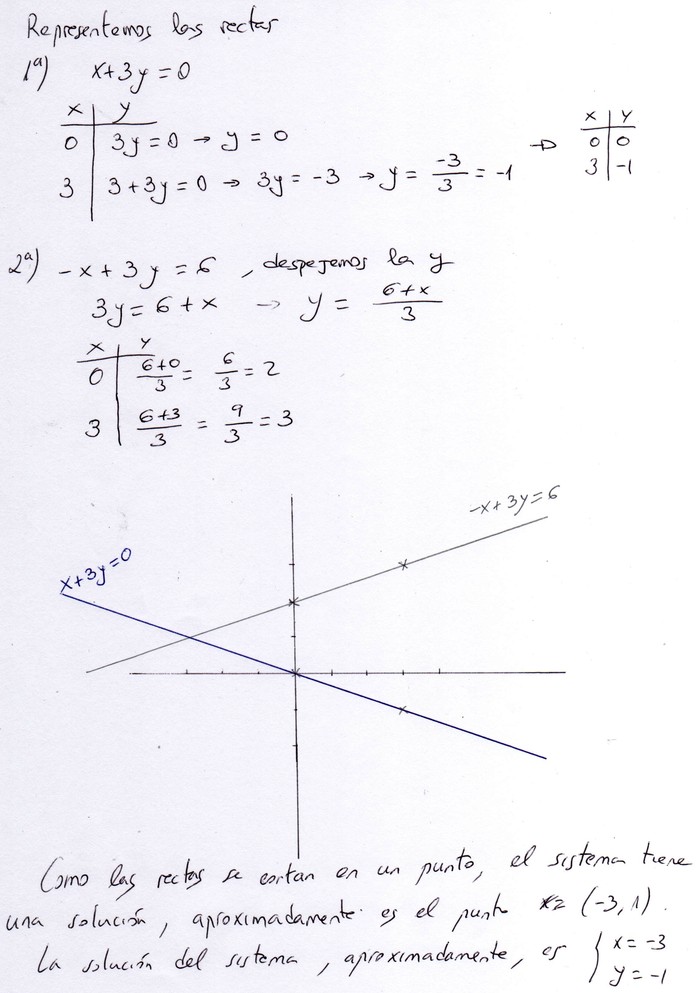 Representemos las rectas
1ª) x+3y=0
x | y
0 | 3y=0 → y=0
3 | 3+3y=0 → 3y=-3 → y= -3/3 = -1
→ x | y
0 | 0
3 | -1
2ª) -x+3y=6, despejemos la y
3y=6+x → y= (6+x)/3
x | y
0 | (6+0)/3 = 6/3 = 2
3 | (6+3)/3 = 9/3 = 3
-x+3y=6
x+3y=0
Como las rectas se cortan en un punto, el sistema tiene
una solución, aproximadamente es el punto (-3,1).
La solución del sistema, aproximadamente, es { x=-3
y=-1